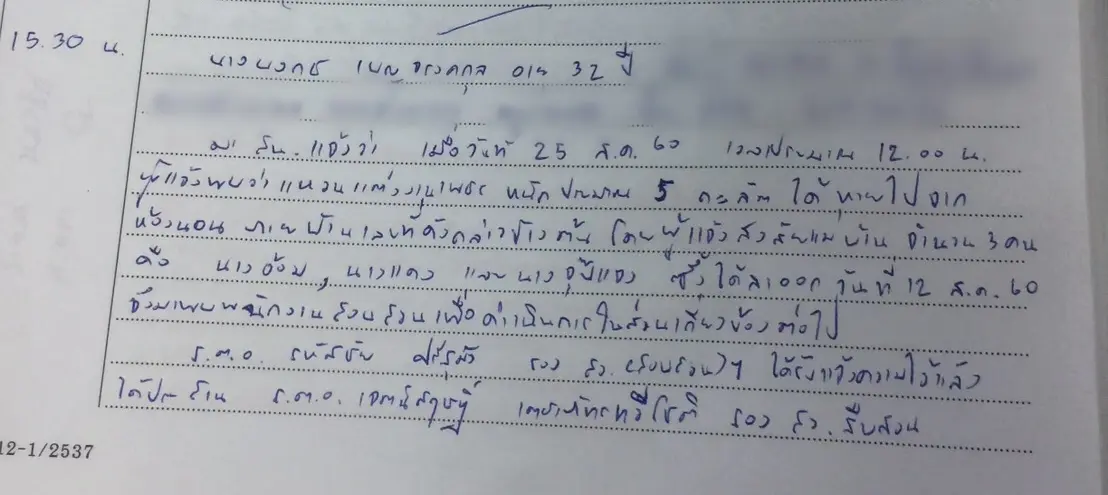 15.30 น.
นางนงภช เบญจรงคกุล อายุ 32 ปี
มา สน. แจ้งว่า เมื่อวันที่ 25 ส.ค. 60 เวลาประมาณ 12.00 น.
ผู้แจ้งพบว่าแหวนแต่งงานเพชร หนักประมาณ 5 กะลัต ได้หายไปจาก
ห้องนอน ภายบ้านเลขที่ดังกล่าวข้างต้น โดยผู้แจ้งสงสัยแม่บ้าน จำนวน 3 คน
คือ นางอ้อม, นางแดง และนาง ซึ่งได้ลาออก วันที่ 12 ส.ค. 60
จึงมาพบพนักงานสอบสวนเพื่อดำเนินการในส่วนเกี่ยวข้องต่อไป
ร.ต.อ. รอง สว.(สอบสวน)ฯ ได้รับแจ้งความไว้แล้ว
ได้ประสาน ร.ต.อ. รอง สว. สืบสวน
12-1/2537